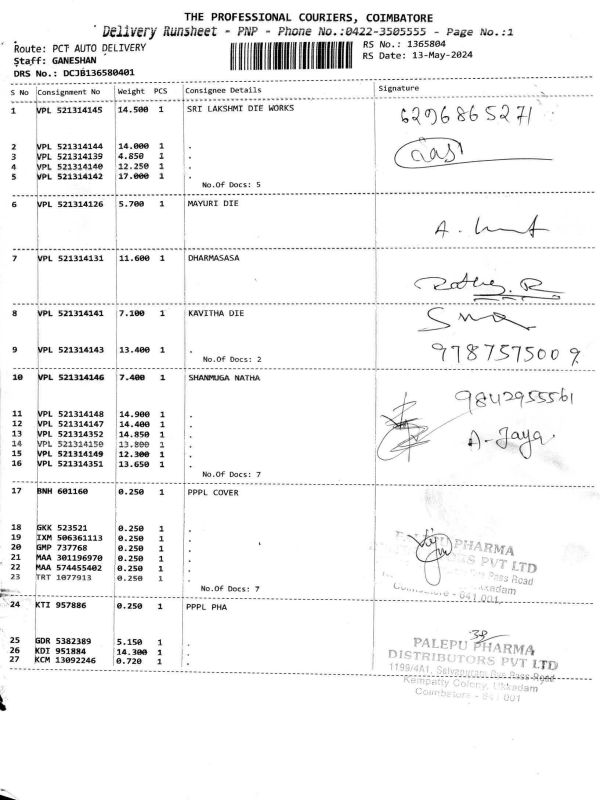 THE PROFESSIONAL COURIERS, COIMBATORE
Delivery Runsheet - PNP - Phone No.:0422-3505555 - Page No.:1
Route: PCT AUTO DELIVERY
RS No.: 1365804
Staff: GANESHAN
RS Date: 13-May-2024
DRS No.: DCJB136580401
S No Consignment No Weight PCS Consignee Details Signature
1 VPL 521314145 14.500 1 SRI LAKSHMI DIE WORKS
6296865271
2 VPL 521314144 14.000 1 .
3 VPL 521314139 4.850 1 .
4 VPL 521314140 12.250 1 .
5 VPL 521314142 17.000 1 .
No.Of Docs: 5
6 VPL 521314126 5.700 1 MAYURI DIE
7 VPL 521314131 11.600 1 DHARMASASA
8 VPL 521314141 7.100 1 KAVITHA DIE
9 VPL 521314143 13.400 1 .
No.Of Docs: 2
9787575009
10 VPL 521314146 7.400 1 SHANMUGA NATHA
9842955561
11 VPL 521314148 14.900 1 .
12 VPL 521314147 14.400 1 .
13 VPL 521314352 14.850 1 .
A-Jaya
14 VPL 521314150 13.800 1 .
15 VPL 521314149 12.300 1 .
16 VPL 521314351 13.650 1 .
No.Of Docs: 7
17 BNH 601160 0.250 1 PPPL COVER
18 GKK 523521 0.250 1 .
19 IXM 506361113 0.250 1 .
20 GMP 737768 0.250 1 .
21 MAA 301196970 0.250 1 .
22 MAA 574455402 0.250 1 .
23 TRT 1077913 0.250 1 .
No.Of Docs: 7
PHARMA
PVT LTD
Pass Road
Ukkadam
Coimbatore - 641 001
24 KTI 957886 0.250 1 PPPL PHA
25 GDR 5382389 5.150 1 .
26 KDI 951884 14.300 1 .
27 KCM 13092246 0.720 1 .
PALEPU PHARMA
DISTRIBUTORS PVT LTD
1199/4A1, Bye Pass Road
Kempatty Colony, Ukkadam
Coimbatore - 641 001